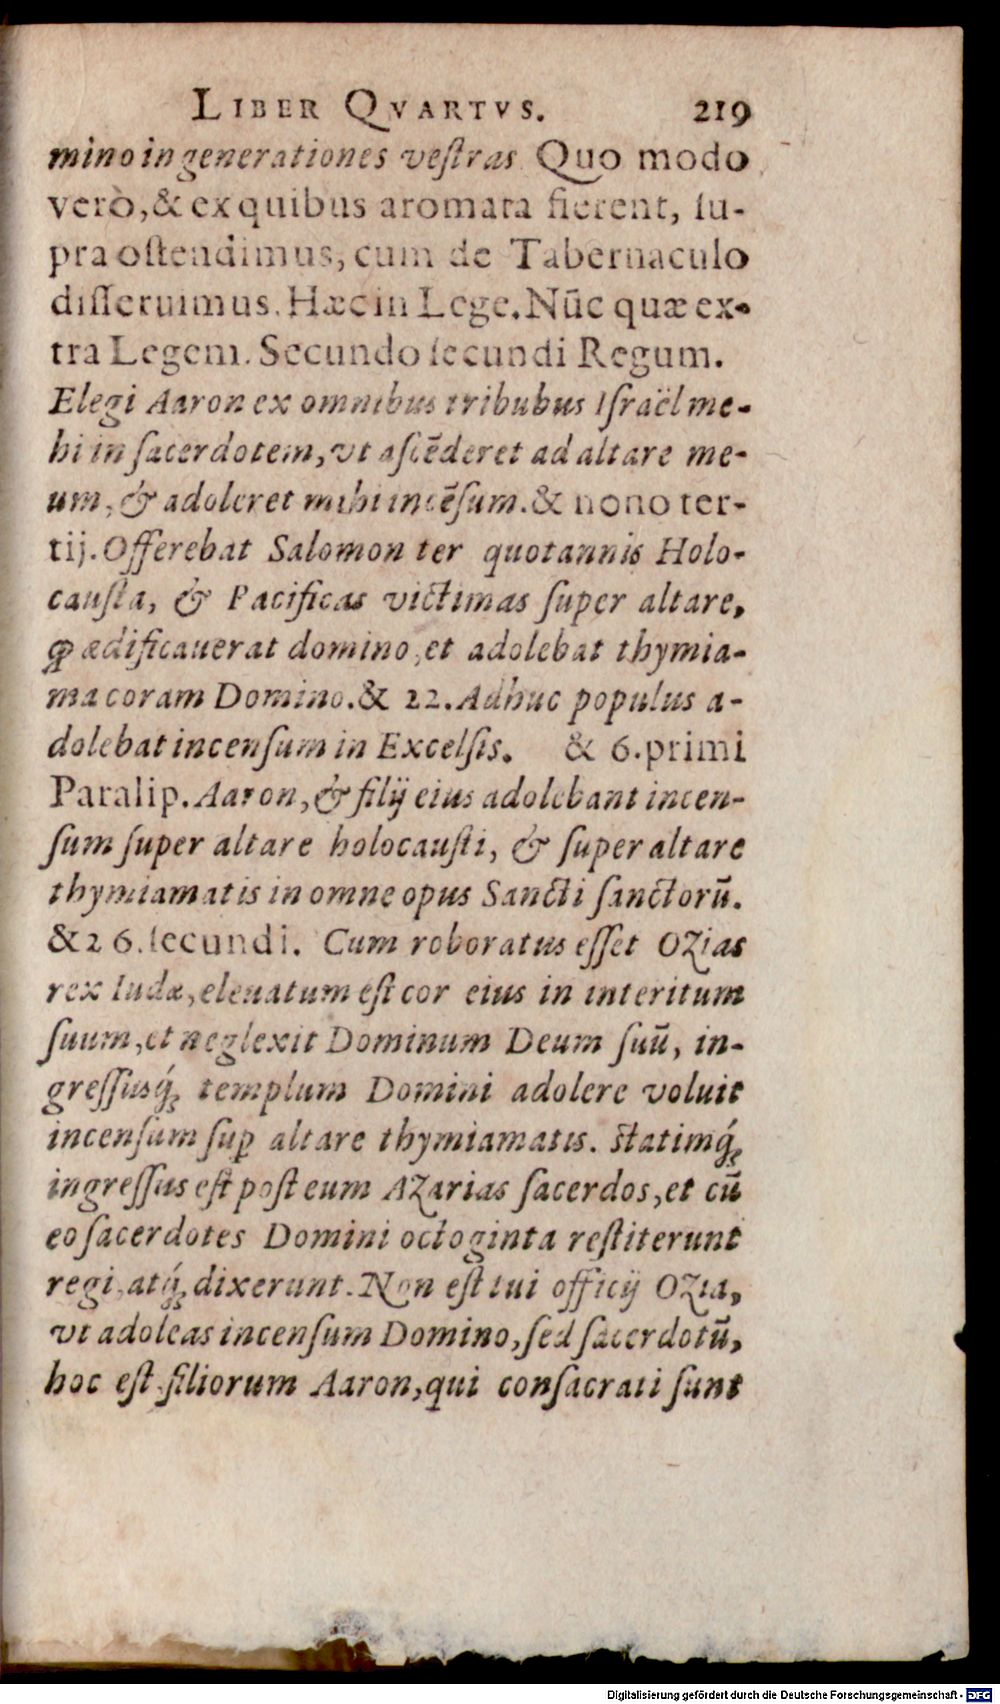 LIBER QVARTVS. 219
mino in generationes vestras. Quo modo
verò, & ex quibus aromata fierent, su-
pra ostendimus, cum de Tabernaculo
disseruimus. Hæc in Lege. Nūc quæ ex-
tra Legem. Secundo secundi Regum.
Elegi Aaron ex omnibus tribubus Israël me-
hi in sacerdotem, vt ascēderet ad altare me-
um, & adoleret mihi incēsum. & nono ter-
tij. Offerebat Salomon ter quotannis Holo-
causta, & Pacificas victimas super altare,
ꝙ ædificauerat domino, et adolebat thymia-
ma coram Domino. & 22. Adhuc populus a-
dolebat incensum in Excelsis. & 6. primi
Paralip. Aaron, & filij eius adolebant incen-
sum super altare holocausti, & super altare
thymiamatis in omne opus Sancti sanctorū.
& 26. secundi. Cum roboratus esset Ozias
rex Iudæ, eleuatum est cor eius in interitum
suum, et neglexit Dominum Deum suū, in-
gressusq́; templum Domini adolere voluit
incensum suꝑ altare thymiamatis. statimq́;
ingressus est post eum Azarias sacerdos, et cū
eo sacerdotes Domini octoginta restiterunt
regi, atq́; dixerunt. Non est tui officij Ozia,
vt adoleas incensum Domino, sed sacerdotū,
hoc est, filiorum Aaron, qui consacrati sunt
Digitalisierung gefördert durch die Deutsche Forschungsgemeinschaft - DFG